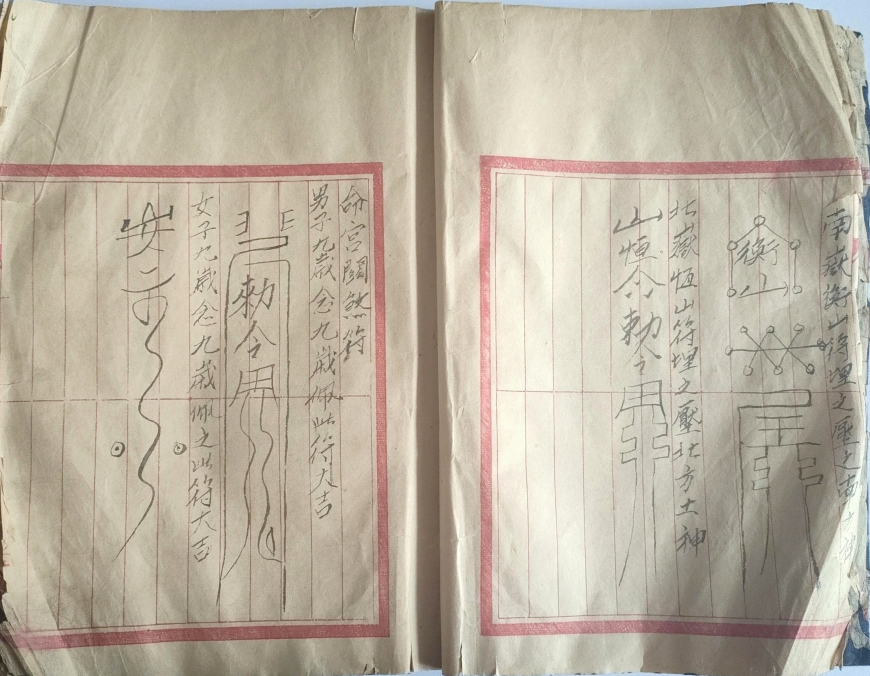 南嶽衡山符埋之壓之南土神
衡山
北嶽恒山符埋之壓北方土神
山恒令敕令
命宮關煞符
男子九歲念九歲佩此符大吉
敕令
女子九歲念九歲佩之此符大吉
安